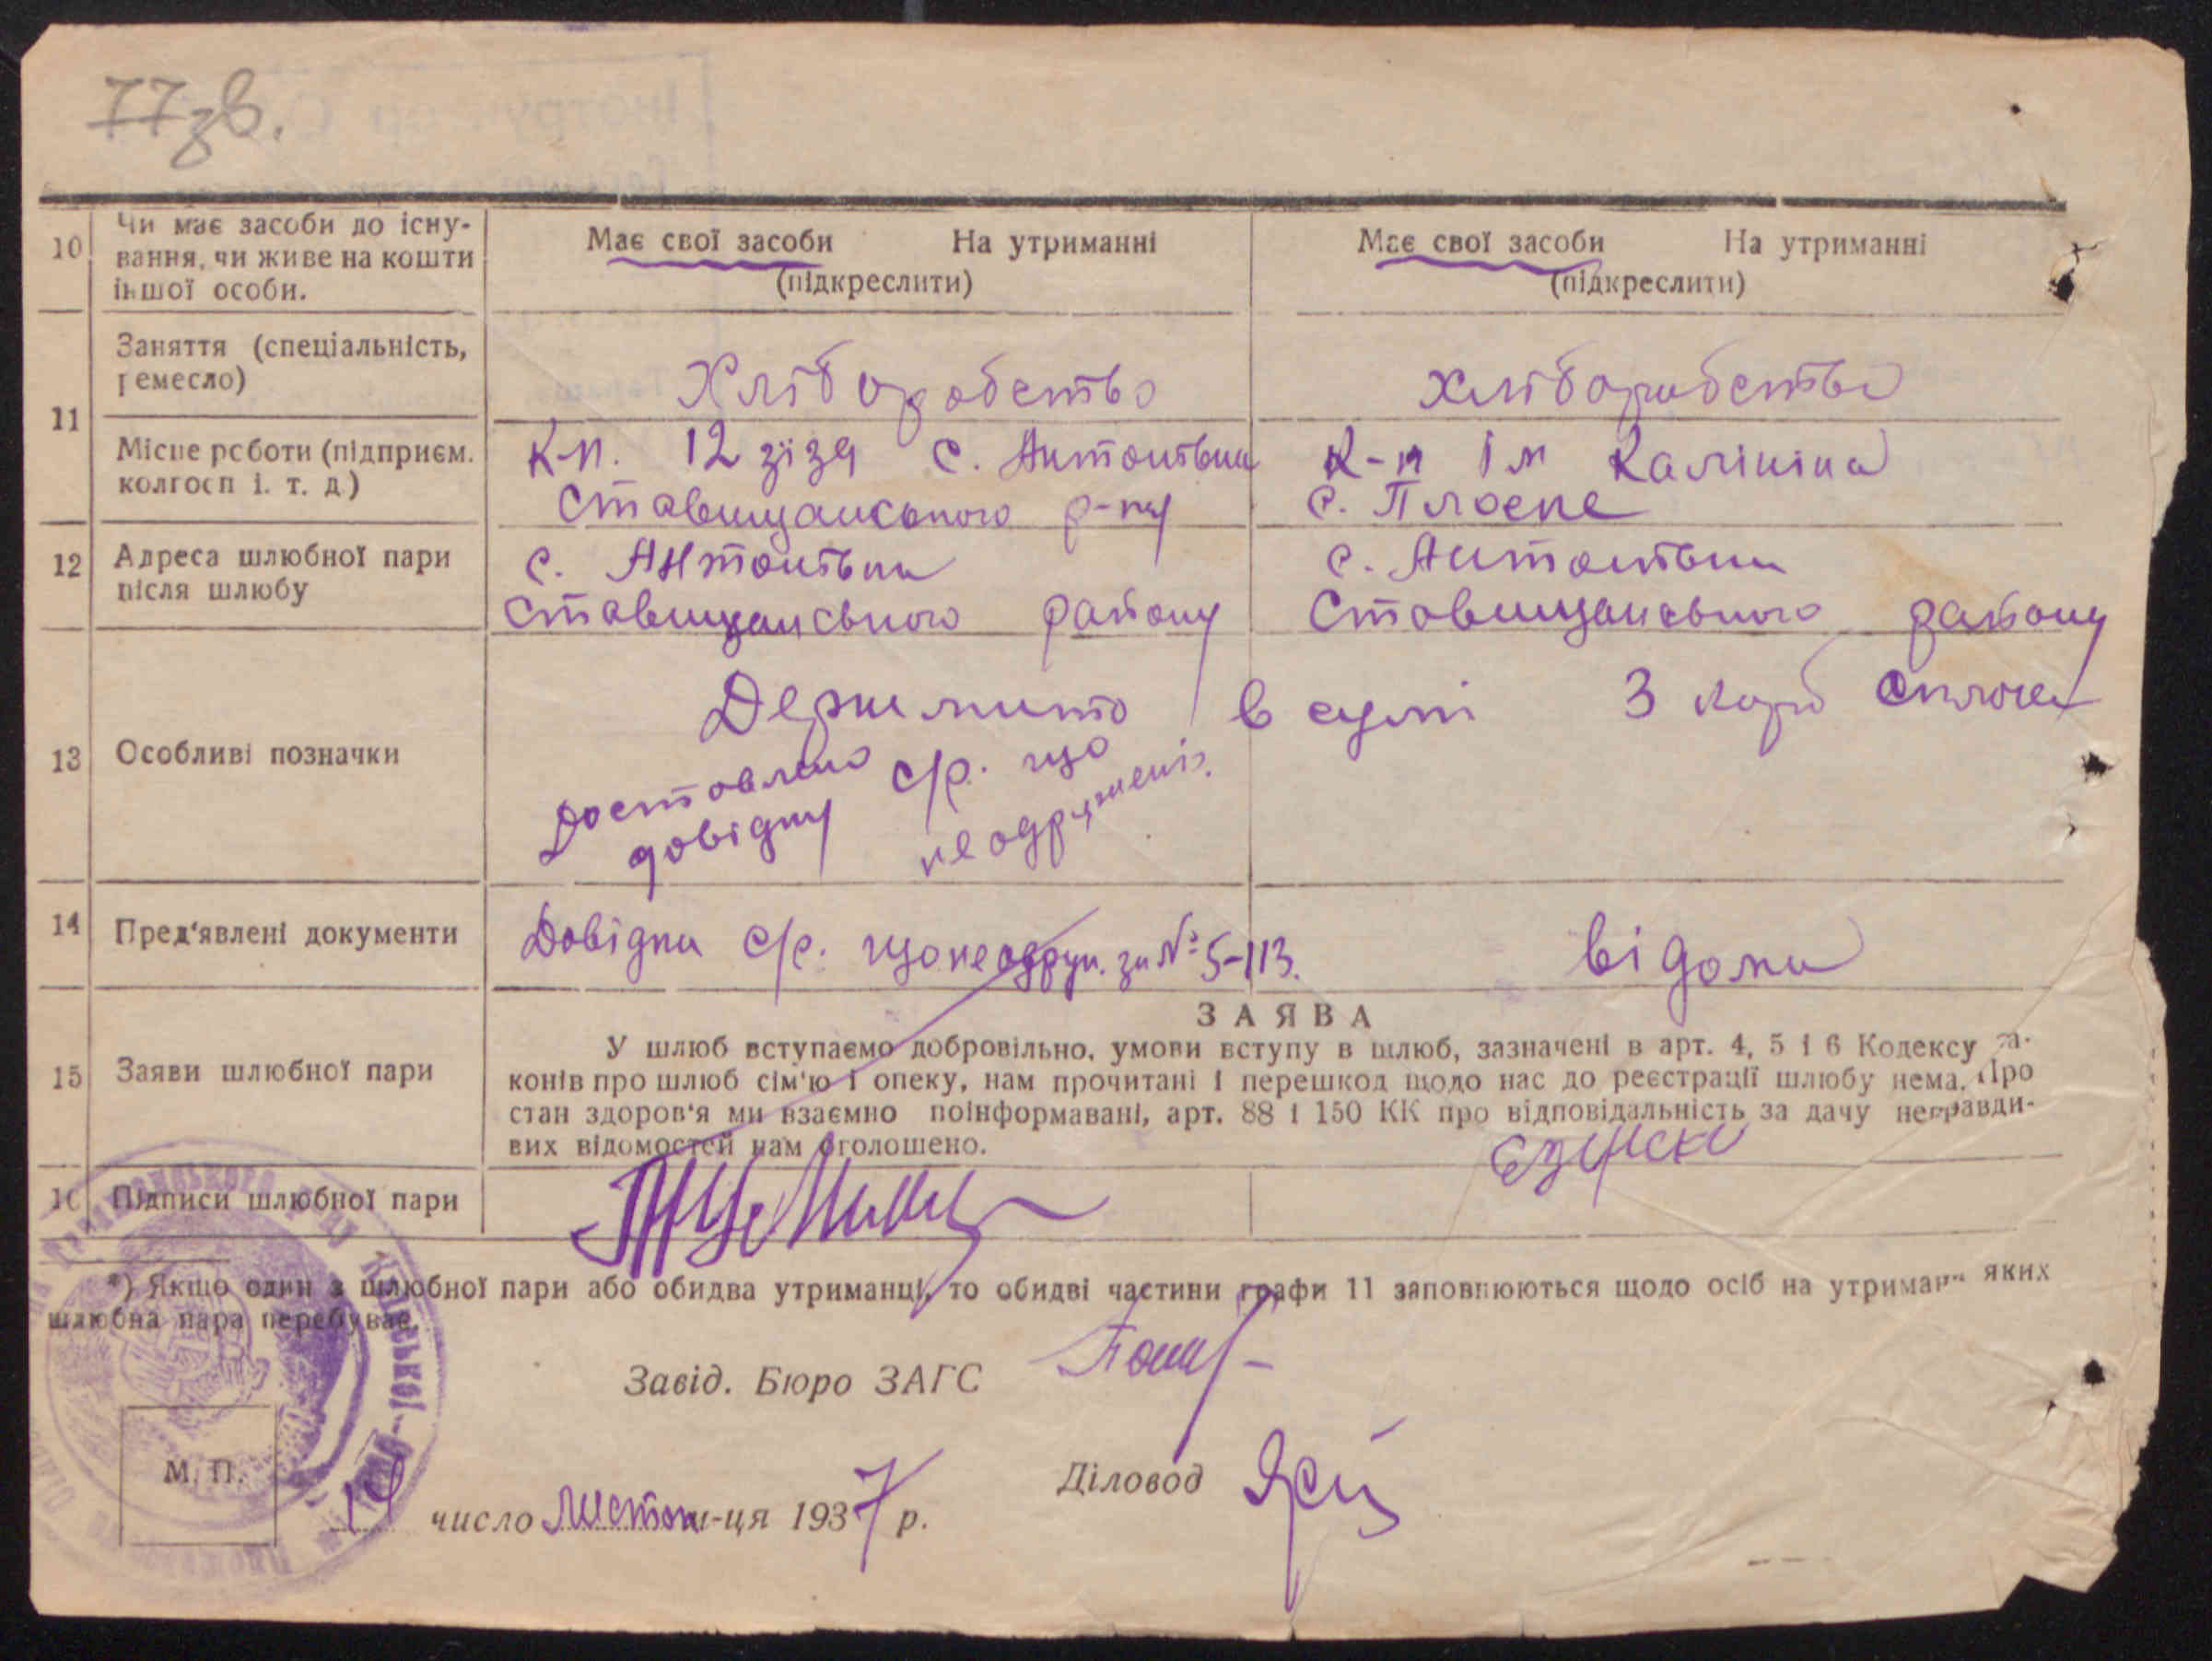 77 зв.
10 Чи має засоби до існу-
вання, чи живе на кошти
іншої особи.
Має свої засоби На утриманні
(підкреслити)
Має свої засоби На утриманні
(підкреслити)
11 Заняття (спеціальність,
ремесло)
Хліборобство
Хліборобство
Місце роботи (підприєм.
колгосп і. т. д.)
К-п. 12 зізд с. Антонівка
Ставищанського р-ну
К-п ім Калініна
с. Плоске
12 Адреса шлюбної пари
після шлюбу
с. Антонівка
Ставищанського району
с. Антонівка
Ставищанського району
13 Особливі позначки
Держмито в сумі 3 карб сплоч
Доставлено
довідку с/р. що
не одружені.
14 Пред'явлені документи
Довідка с/р. що не одруж. за № 5-113.
відома
15 Заяви шлюбної пари
ЗАЯВА
У шлюб вступаємо добровільно, умови вступу в шлюб, зазначені в арт. 4, 5 і 6 Кодексу за-
конів про шлюб сім'ю і опеку, нам прочитані і перешкод щодо нас до реєстрації шлюбу нема. Про
стан здоров'я ми взаємно поінформавані, арт. 88 і 150 КК про відповідальність за дачу неправди-
вих відомостей нам оголошено.
16 Підписи шлюбної пари
*) Якщо один з шлюбної пари або обидва утриманці, то обидві частини графи 11 заповнюються щодо осіб на утриман яких
шлюбна пара перебуває.
Завід. Бюро ЗАГС
М. П.
число листопа-ця 1937 р.
Діловод